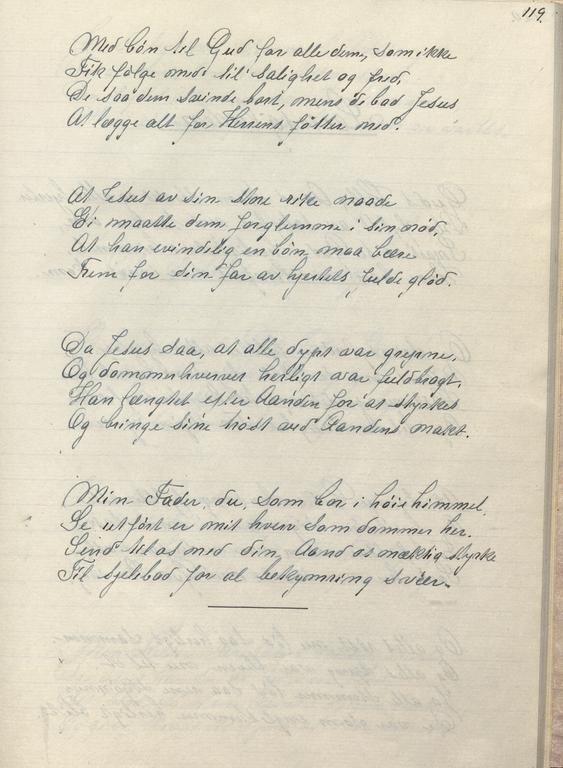 119.
Med bön til Gud for alle dem, som ikke
Fik følge med til salighet og fred,
De saa dem svinde bort, mens de bad Jesus
At lægge alt for Herrens føtter ned.
At Jesus av sin store rike naade
Ei maatte dem forglemme i sin nød,
At han evindelig en bön maa bære
Frem for din far av hjertets fulde glød.
Da Jesus saa, at alle dypt var grepne,
Og dommerhvervet herligt var fuldbragt,
Han længtet efter Aanden for at styrkes
Og bringe sine höst ved Aandens makt.
Min Fader, du, som bor i höie himmel,
Se utfört er mit hverv som dommer her.
Send til os med din Aand os mæktig styrke
Til sjelebad for al bekymring svær.